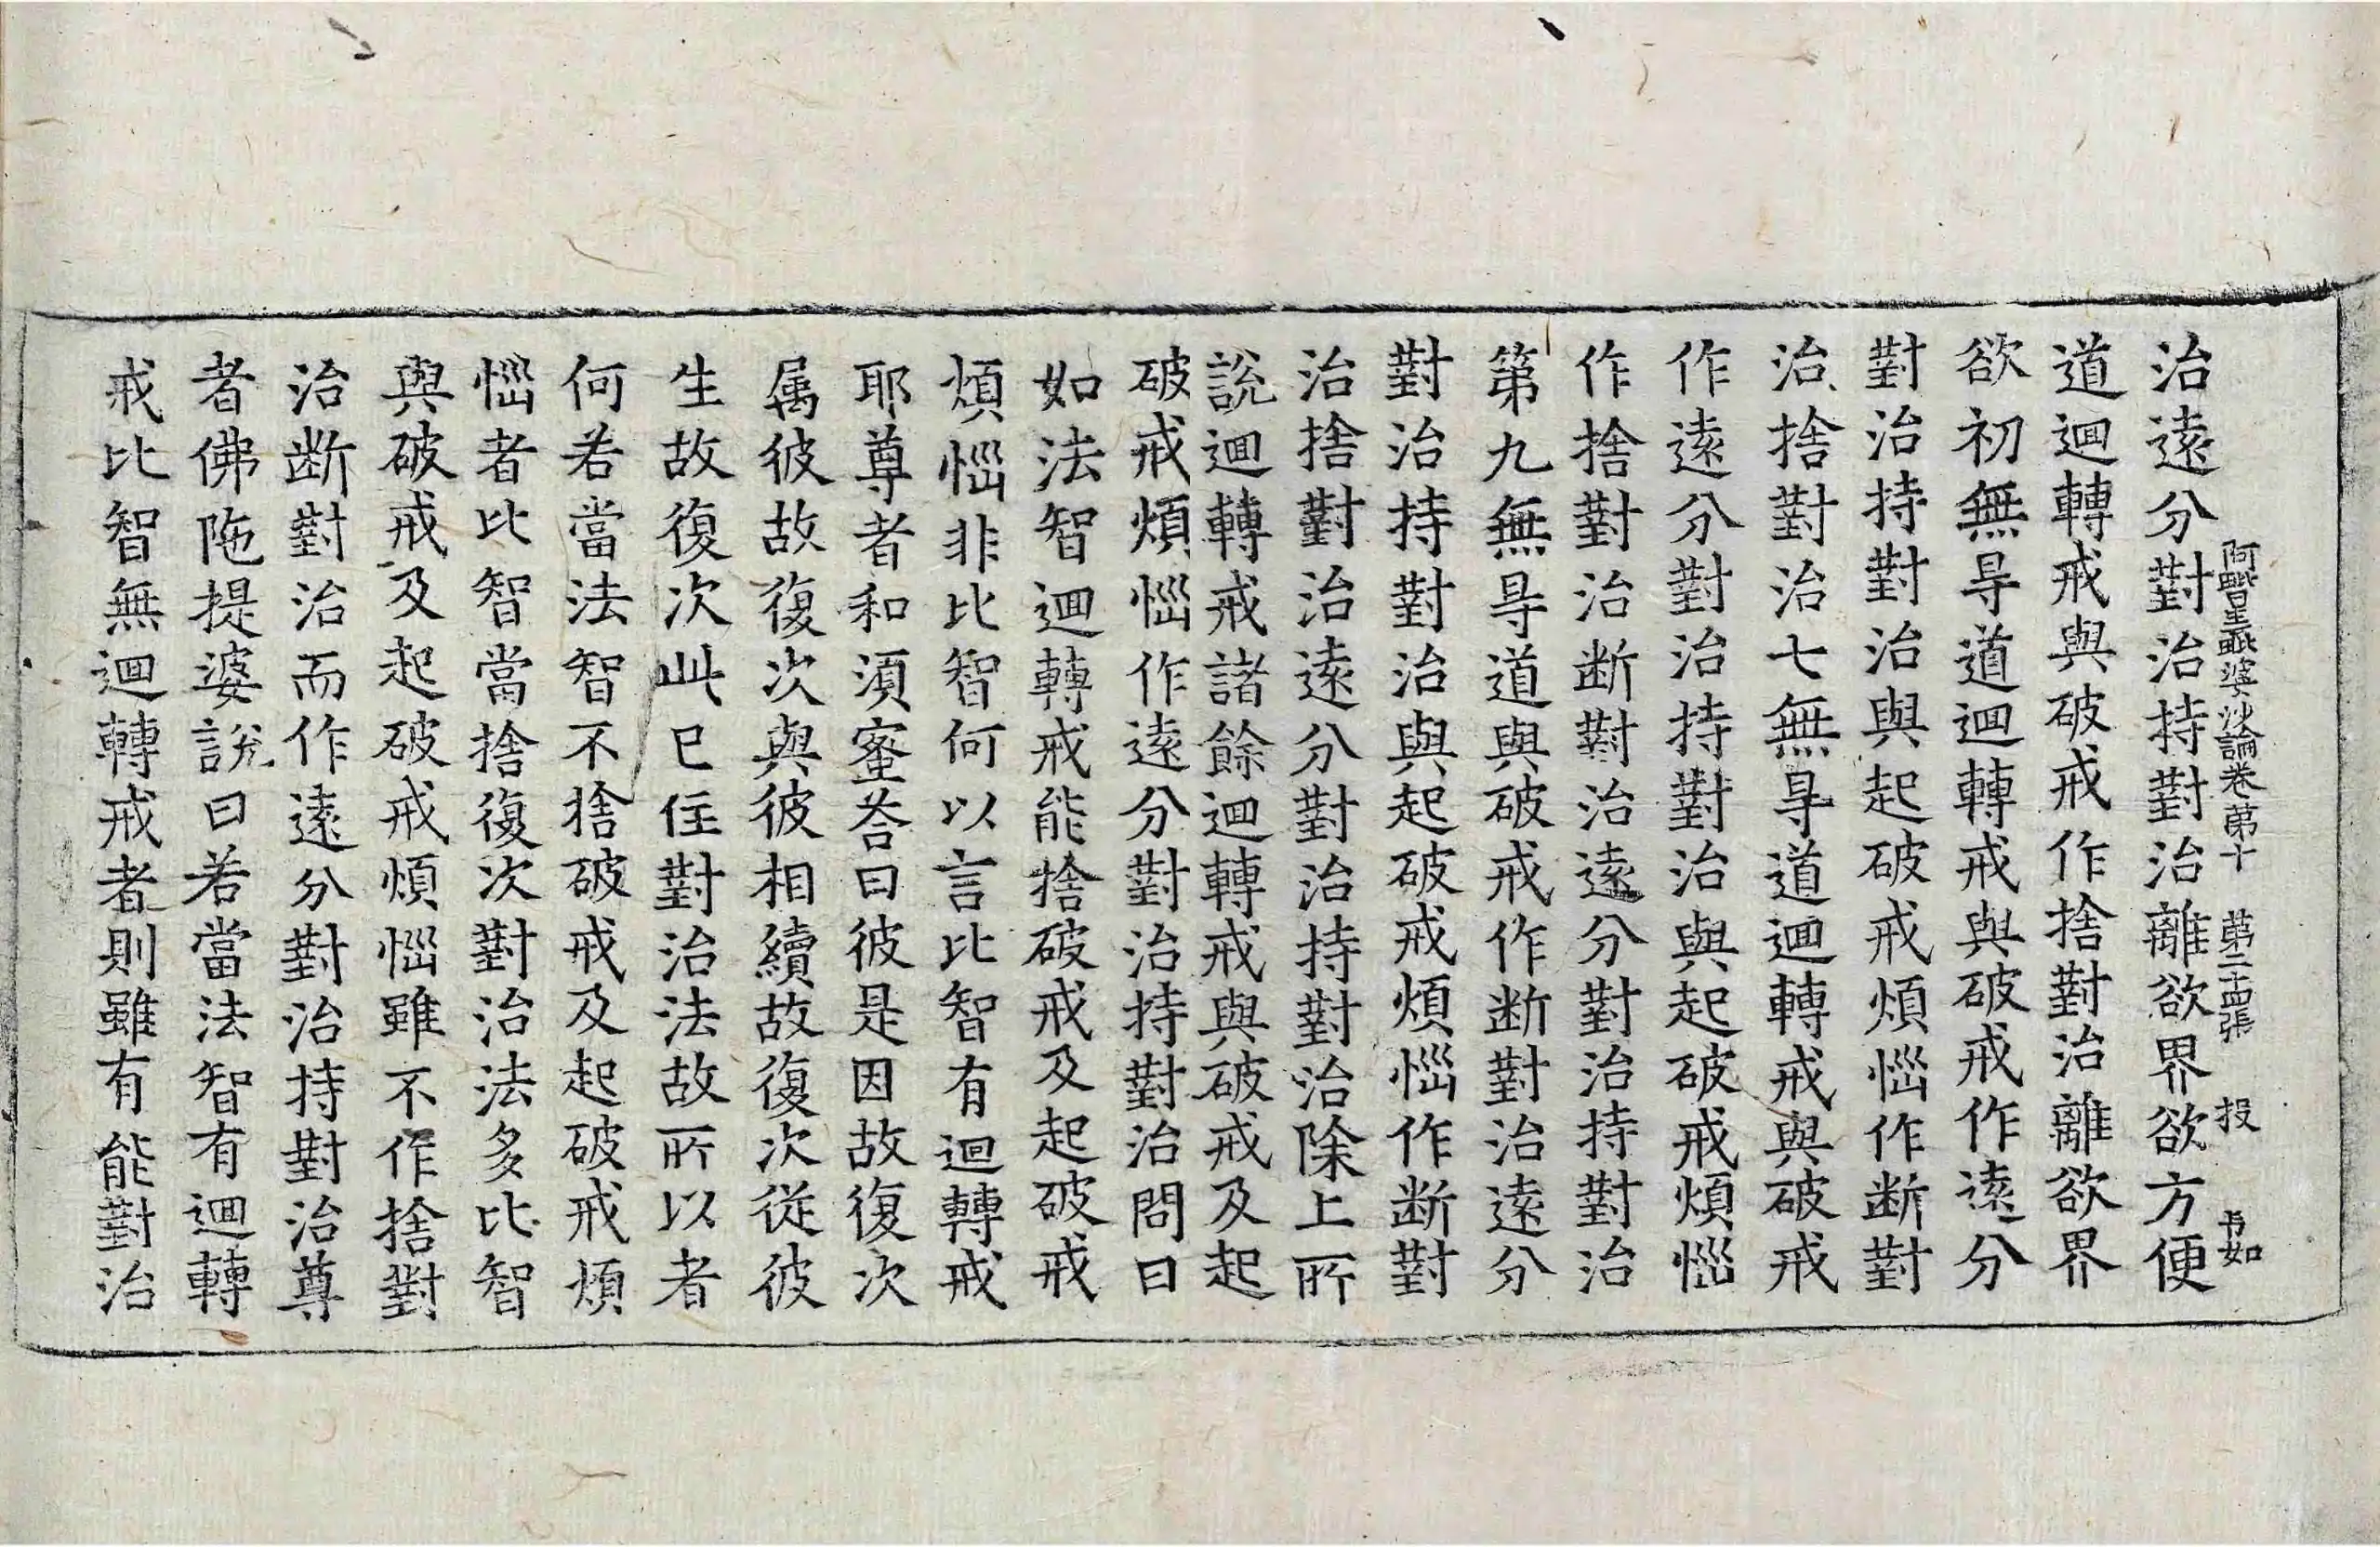 阿毗曇毗婆沙論卷第十 第二十四張 投
治遠分對治持對治離欲界欲方便
道迴轉戒與破戒作捨對治離欲界
欲初無㝵道迴轉戒與破戒作遠分
對治持對治與起破戒煩惱作断對
治捨對治七無㝵道迴轉戒與破戒
作遠分對治持對治與起破戒煩惱
作捨對治断對治遠分對治持對治
第九無㝵道與破戒作断對治遠分
對治持對治與起破戒煩惱作断對
治捨對治遠分對治持對治除上所
說迴轉戒諸餘迴轉戒與破戒及起
破戒煩惱作遠分對治持對治問曰
如法智迴轉戒能捨破戒及起破戒
煩惱非比智何以言比智有迴轉戒
耶尊者和須蜜荅曰彼是因故復次
属彼故復次與彼相續故復次從彼
生故復次此已住對治法故所以者
何若當法智不捨破戒及起破戒煩
惱者比智當捨復次對治法多比智
與破戒及起破戒煩惱雖不作捨對
治断對治而作遠分對治持對治尊
者佛陁提婆說曰若當法智有迴轉
戒比智無迴轉戒者則雖有能對治